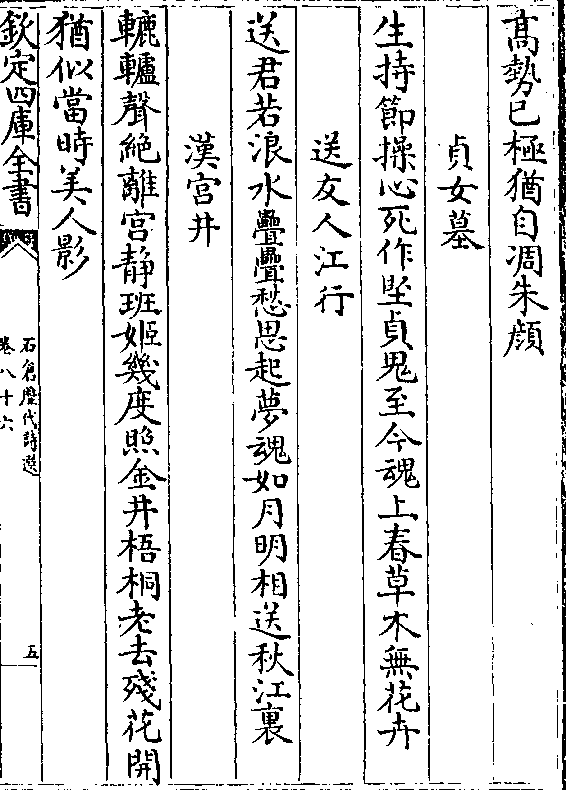 髙勢已極猶自凋朱顔
貞女墓
生持節操心死作堅貞鬼至今魂上春草木無花卉
送友人江行
送君若浪水疊疊愁思起夢魂如月明相送秋江裏
漢宫井
轆轤聲絶離宫静班姬幾度照金井梧桐老去殘花開
猶似當時美人影
欽定四庫全書
石倉歴代詩選
卷八十六
五